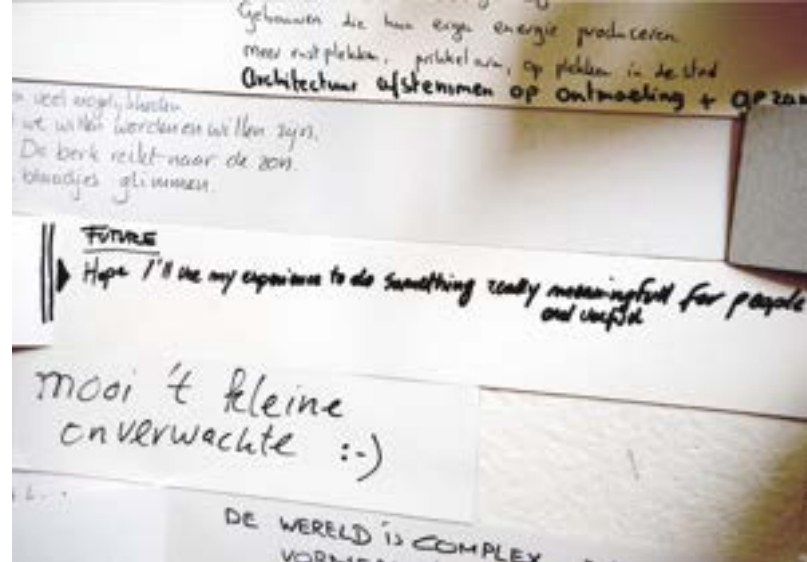 Gebouwen die hun eigen energie produceren
meer rustplekken, prikkelarm, op plekken in de stad
Architectuur afstemmen op ontmoeting +
veel mogelijkheden
we willen worden en willen zijn.
De berk reikt naar de zon.
blaadjes glimmen.
FUTURE
Hope I'll use my experience to do something really meaningfull for people
and usefull
mooi 't kleine
onverwachte :-)
DE WERELD is COMPLEX